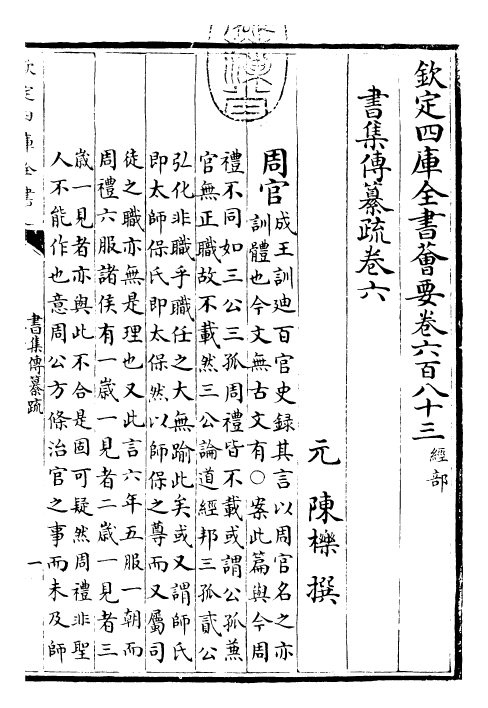 欽定四庫全書薈要卷六百八十三 經部
書集傳纂疏卷六
元 陳櫟 撰
周官
成王訓迪百官史錄其言以周官名之亦
訓體也今文無古文有○案此篇與今周
禮不同如三公三孤周禮皆不載或謂公孤兼
官無正職故不載然三公論道經邦三孤貳公
弘化非職乎職任之大無踰此矣或又謂師氏
即太師保氏即太保然以師保之尊而又屬司
徒之職亦無是理也又此言六年五服一朝而
周禮六服諸侯有一歲一見者二歲一見者三
歲一見者亦與此不合是固可疑然周禮非聖
人不能作也意周公方條治官之事而未及師
欽定四庫全書
書集傳纂疏
一